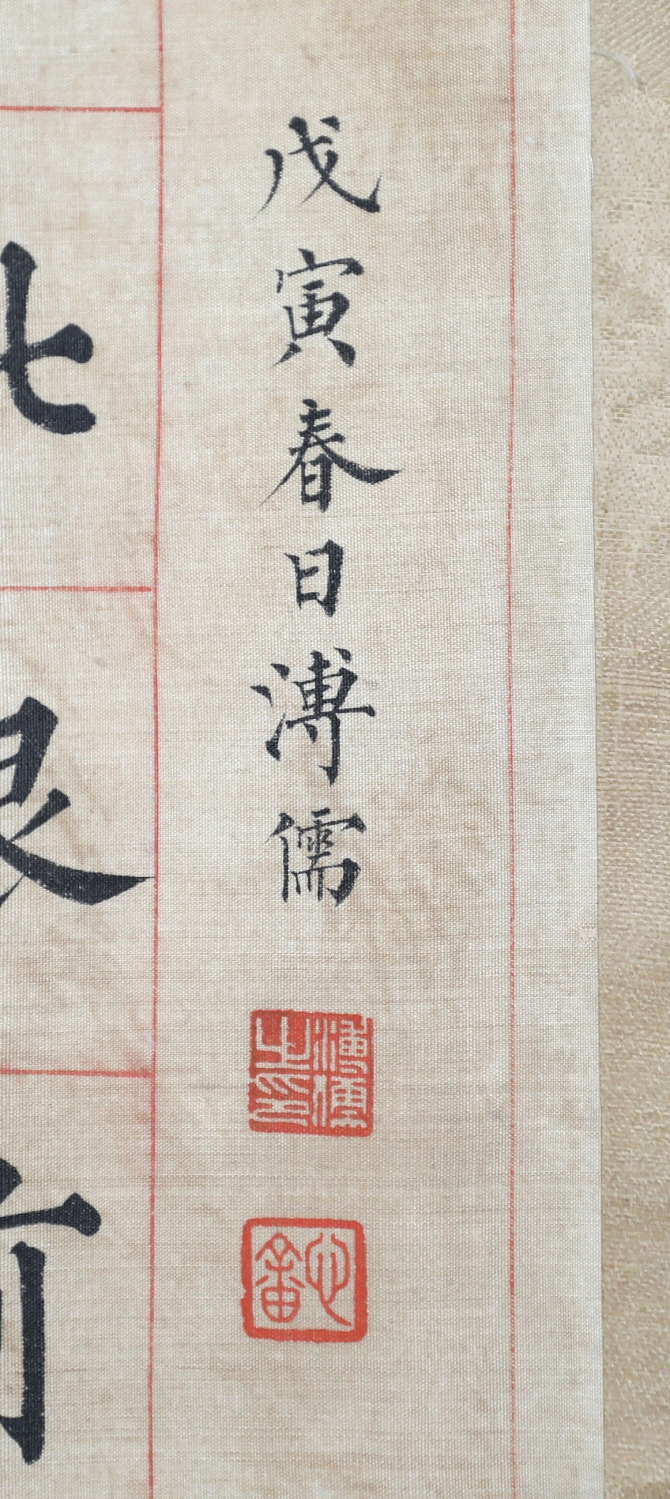 戊寅春日溥儒
溥儒之印
心畬